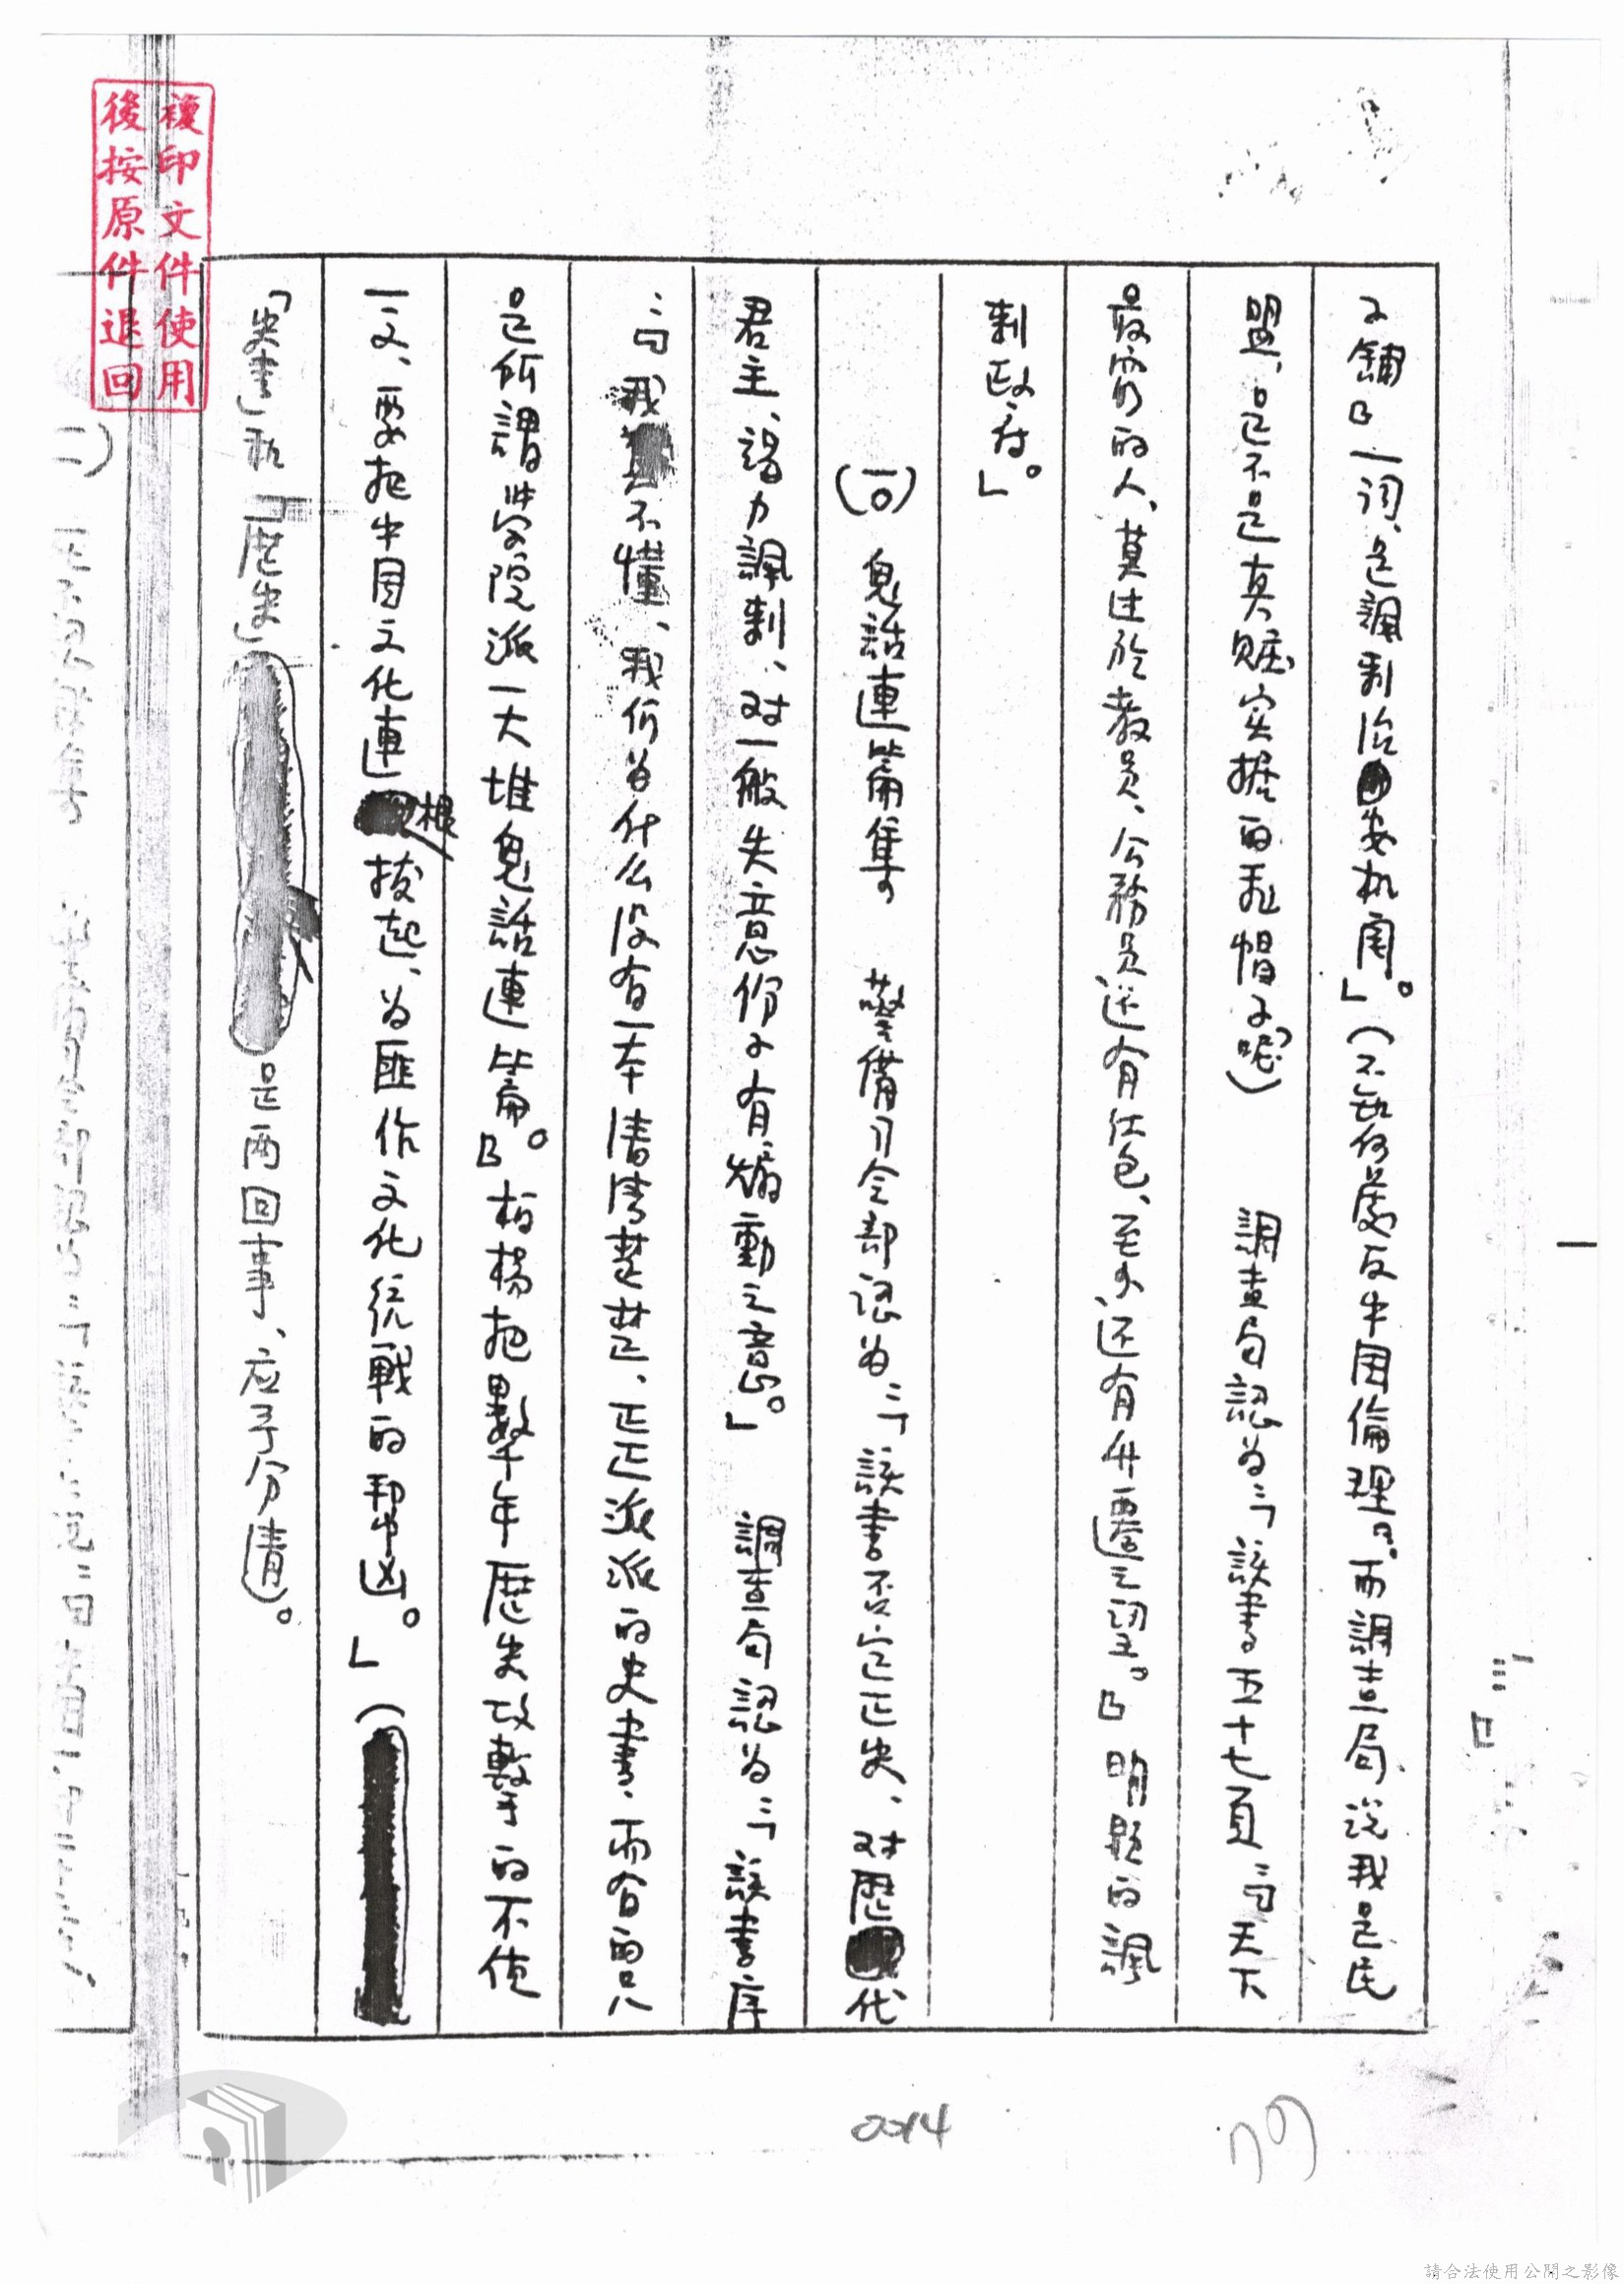 複印文件使用
後按原件退回
子舖』一詞、是諷刺治安机関。」（不知何處反中国倫理？而調查局説我是民
盟、是不是真賍实据的乱帽子呢？）　調查局認為：「該書五十七頁：『天下
最窮的人、莫过於教員、公務員还有红包、至少还有升遷之望。』明顕的諷
刺政府。」
鬼話連篇集　警備司令部認為：「該書否定正史、对歷代
君主、竭力諷刺、对一般失意份子有煽動之意。」　調查局認為：「該書序
：『我不懂、我们為什么没有一本清清楚楚、正正派派的史書、而有的只
是所謂学院派一大堆鬼話連篇』。柏楊把數千年歷史攻擊的不值
一文、要把中国文化連根拔起、為匪作文化統戰的幫凶。」（
「史書」和「歷史」是两回事、应予分清。
0014
79
請合法使用公開之影像